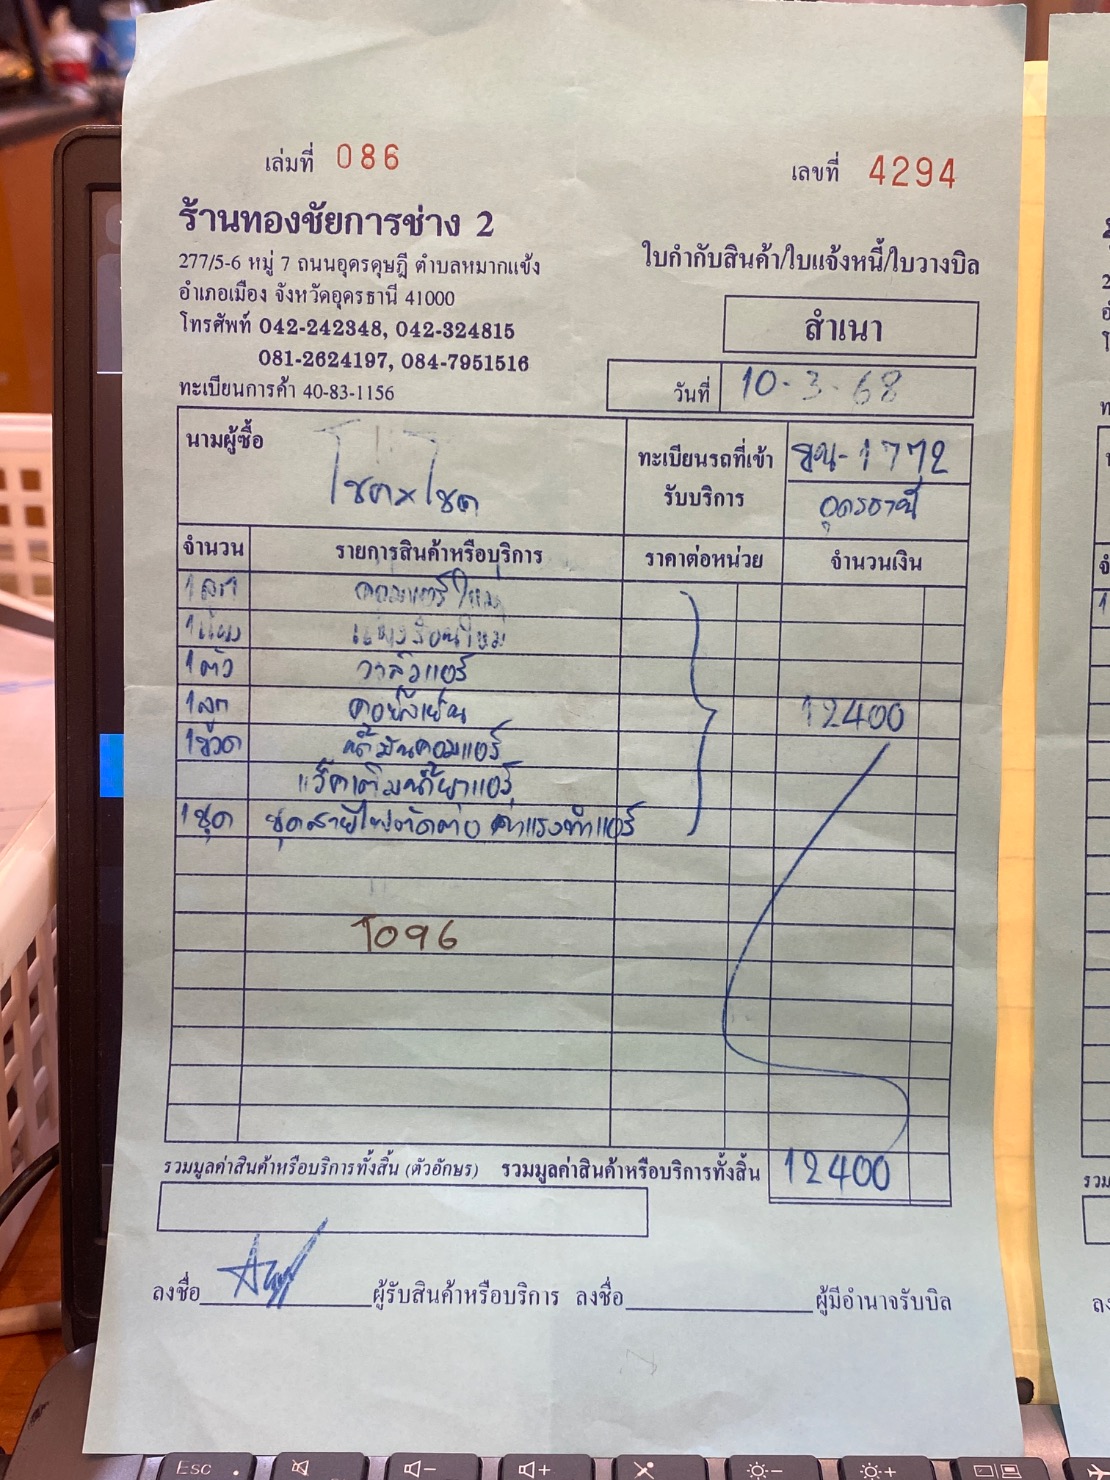 เล่มที่ 086
เลขที่ 4294
ร้านทองชัยการช่าง 2
277/5-6 หมู่ 7 ถนนอุดรดุษฎี ตำบลหมากแข้ง
อำเภอเมือง จังหวัดอุดรธานี 41000
โทรศัพท์ 042-242348, 042-324815
081-2624197, 084-7951516
ทะเบียนการค้า 40-83-1156
ใบกำกับสินค้า/ใบแจ้งหนี้/ใบวางบิล
สำเนา
วันที่ 10-3-68
นามผู้ซื้อ
ทะเบียนรถที่เข้ารับบริการ
ขน-1772
อุดรธานี
จำนวน รายการสินค้าหรือบริการ ราคาต่อหน่วย จำนวนเงิน
1ลูก คอมแอร์ใหม่
1แผง แผงร้อนใหม่
1ตัว วาล์วแอร์
1ลูก คอยล์เย็น 12400
1ขวด น้ำมันคอมแอร์
แว็คเติมน้ำยาแอร์
1ชุด ชุดสายไฟตัดต่อ ค่าแรงทำแอร์
1096
รวมมูลค่าสินค้าหรือบริการทั้งสิ้น (ตัวอักษร) รวมมูลค่าสินค้าหรือบริการทั้งสิ้น 12400
ลงชื่อ ผู้รับสินค้าหรือบริการ ลงชื่อ ผู้มีอำนาจรับบิล
Esc